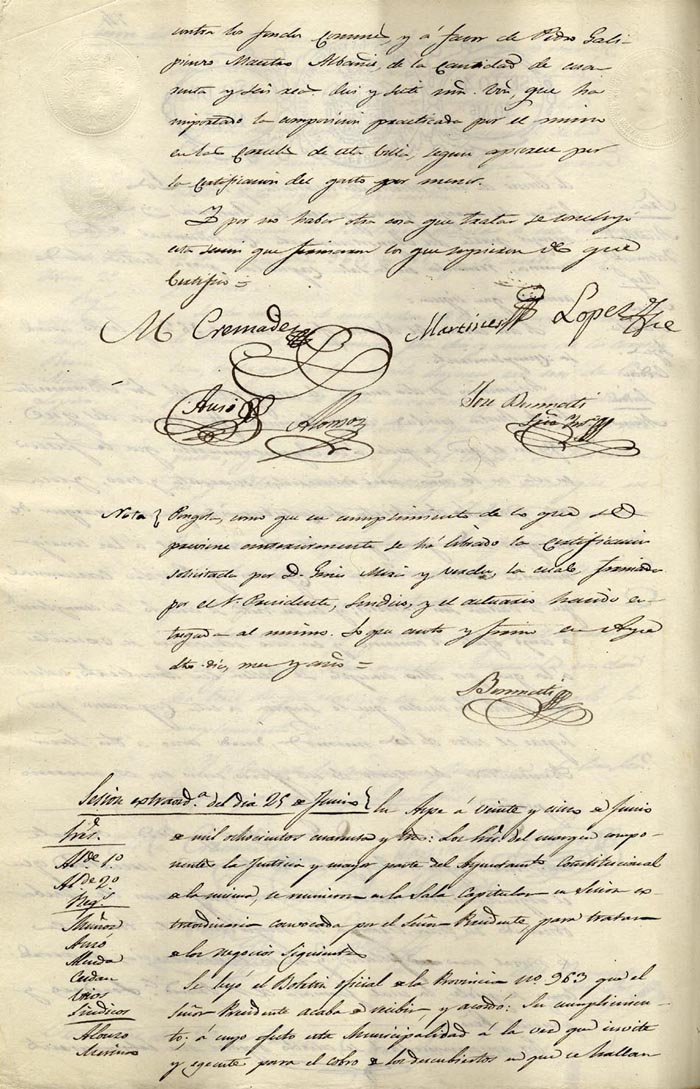 contra los fondos Comunes, y á favor de Pedro Gali-
pienso Maestro Albañil, de la Cantidad de cua-
renta y seis rea.s dies y siete mrs. Von, que ha
importado la composicion practicada por el mismo
en la Carcel de esta Villa, segun aparece por
la certificacion del gasto por menor.
Y por no haber otra cosa que tratar se concluyó
esta sesion que firmaron los que supieron de que
Certifico =
M Cremades
Martinez
Lopez
Auso
Alonso
Jose
Srio
Nota } Pongola, como que en cumplimiento de lo que se
previene anteriormente se há librado la Certificacion
solicitada por D. Ginés Mira y Verdu, la cual firmada
por el Sr. Presidente, Sindico, y el actuario hacido en-
tregada al mismo. Lo que anoto y firmo en Aspe
dho. dia, mes y año =
Sesion extraord.a del dia 25 de Junio } En Aspe á veinte y cinco de Junio
Sres.
de mil ochocientos cuarenta y tres: Los Sres. del margen compo-
Al.de 1.o
nentes la Justicia y mayor parte del Ayuntam.to Constitucional
Al.de 2.o
de la misma, se reunieron en la Sala Capitular en Sesion ex-
Reg.s
traordinaria convocada por el Señor Presidente, para tratar
Muñoz
de los negocios siguientes
Auso
Almela
Se leyó el Boletin oficial de la Provincia no. 963 que el
Señor Presidente acaba de recibir, y acordó: Su cumplimien-
Sindicos
to: á cuyo efecto esta Municipalidad á la vez que invite
Alonso
y egecute para el cobro de los descubiertos en que se hallan